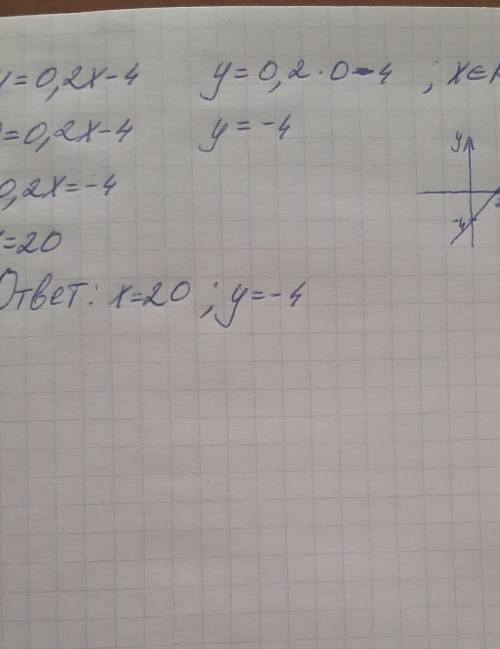 y=0,2x-4 y=0,2·0-4 ; x∈
0=0,2x-4 y=-4
0,2x=-4
x=20
Ответ: x=20 ; y=-4
y
-4